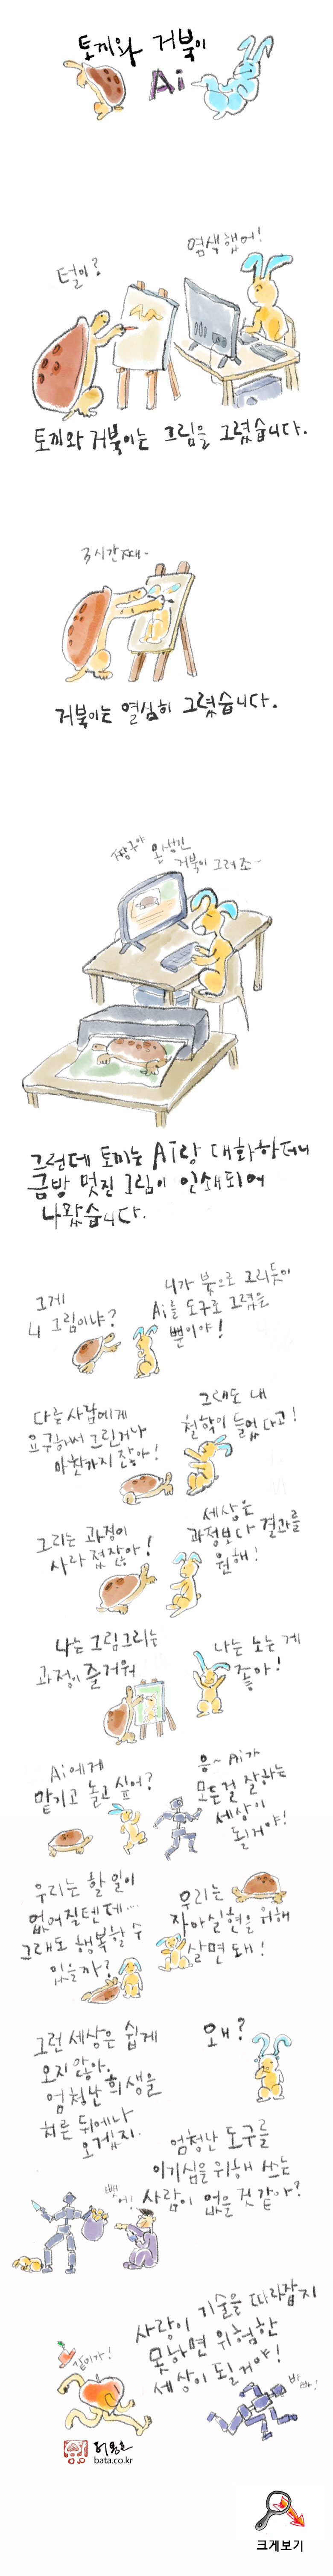 토끼와 거북이
Ai
털이?
염색했어!
토끼와 거북이는 그림을 그렸습니다.
3시간째~
거북이는 열심히 그렸습니다.
짱구야 온생긴
거북이 그려줘~
그런데 토끼는 Ai랑 대화하더니
금방 멋진 그림이 인쇄되어
나왔습니다.
그게
니 그림이냐?
니가 붓으로 그리듯이
Ai를 도구로 그렸을
뿐이야!
다른 사람에게
요구해서 그린거나
마찬가지 잖아!
그래도 내
철학이 들었다고!
그리는 과정이
사라졌잖아!
세상은
과정보다 결과를
원해!
나는 그림그리는
과정이 즐거워
나는 노는 게
좋아!
Ai에게
맡기고 놀고 싶어?
응~ Ai가
모든걸 잘하는
세상이
될거야!
우리는 할 일이
없어질텐데...
그래도 행복할 수
있을까?
우리는
자아실현을 위해
살면 돼!
그런 세상은 쉽게
오지 않아.
엄청난 희생을
치른 뒤에나
오겠지.
왜?
엄청난 도구를
이기심을 위해 쓰는
사람이 없을 것 같아?
뺏어!
사랑이 기술을 따라잡지
못하면 위험한
세상이 될거야!
같이가!
바빠!
허용호
bata.co.kr
크게보기